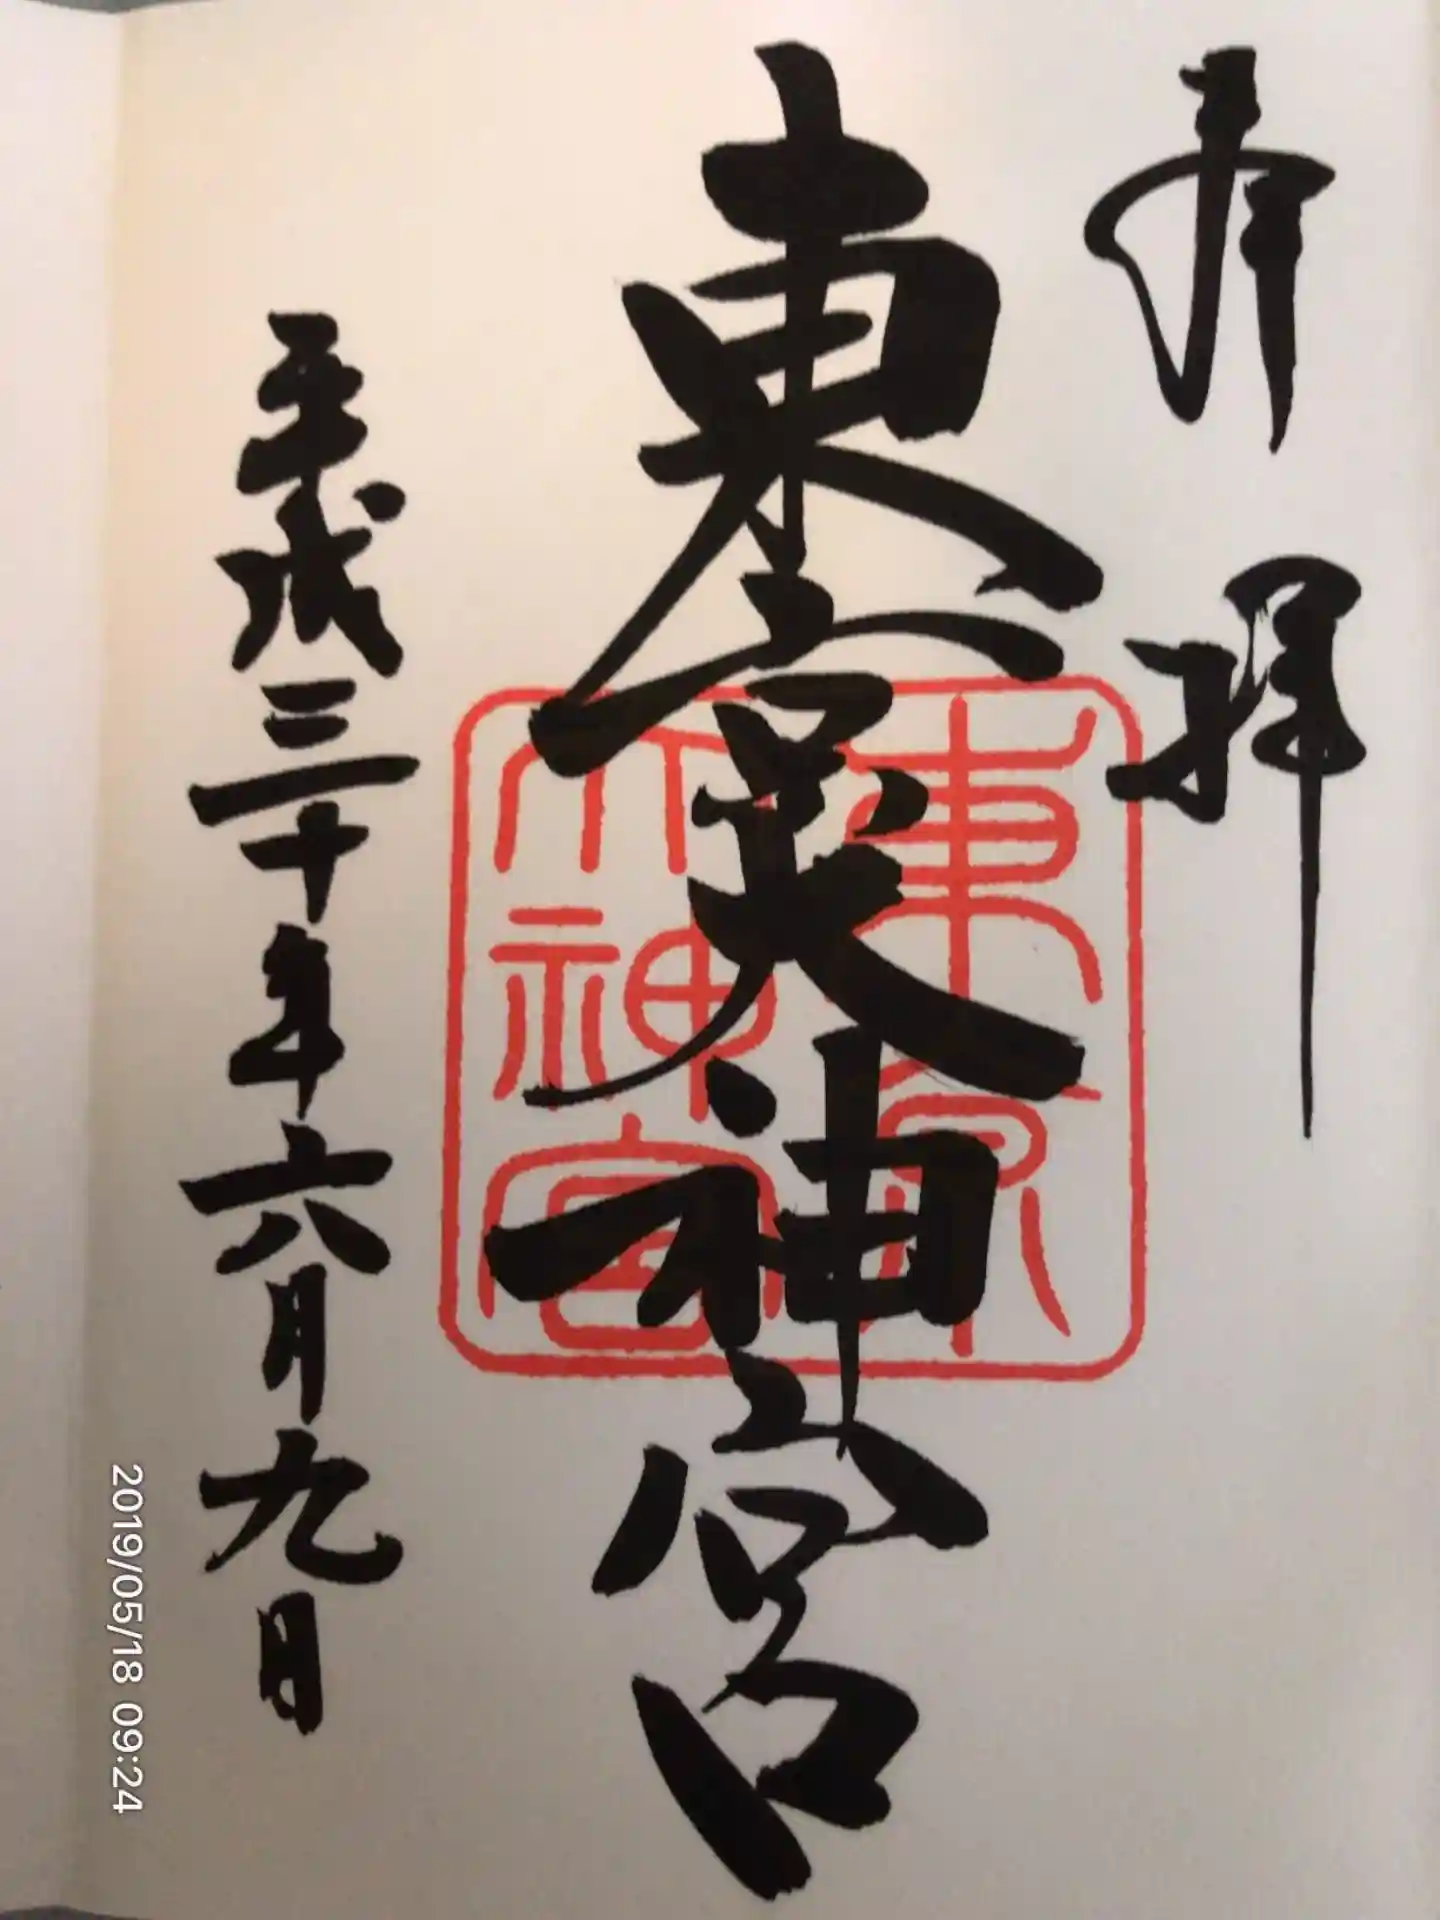 奉拝
東京大神宮
東京
大神宮
平成三十年六月九日
2019/05/18 09:24